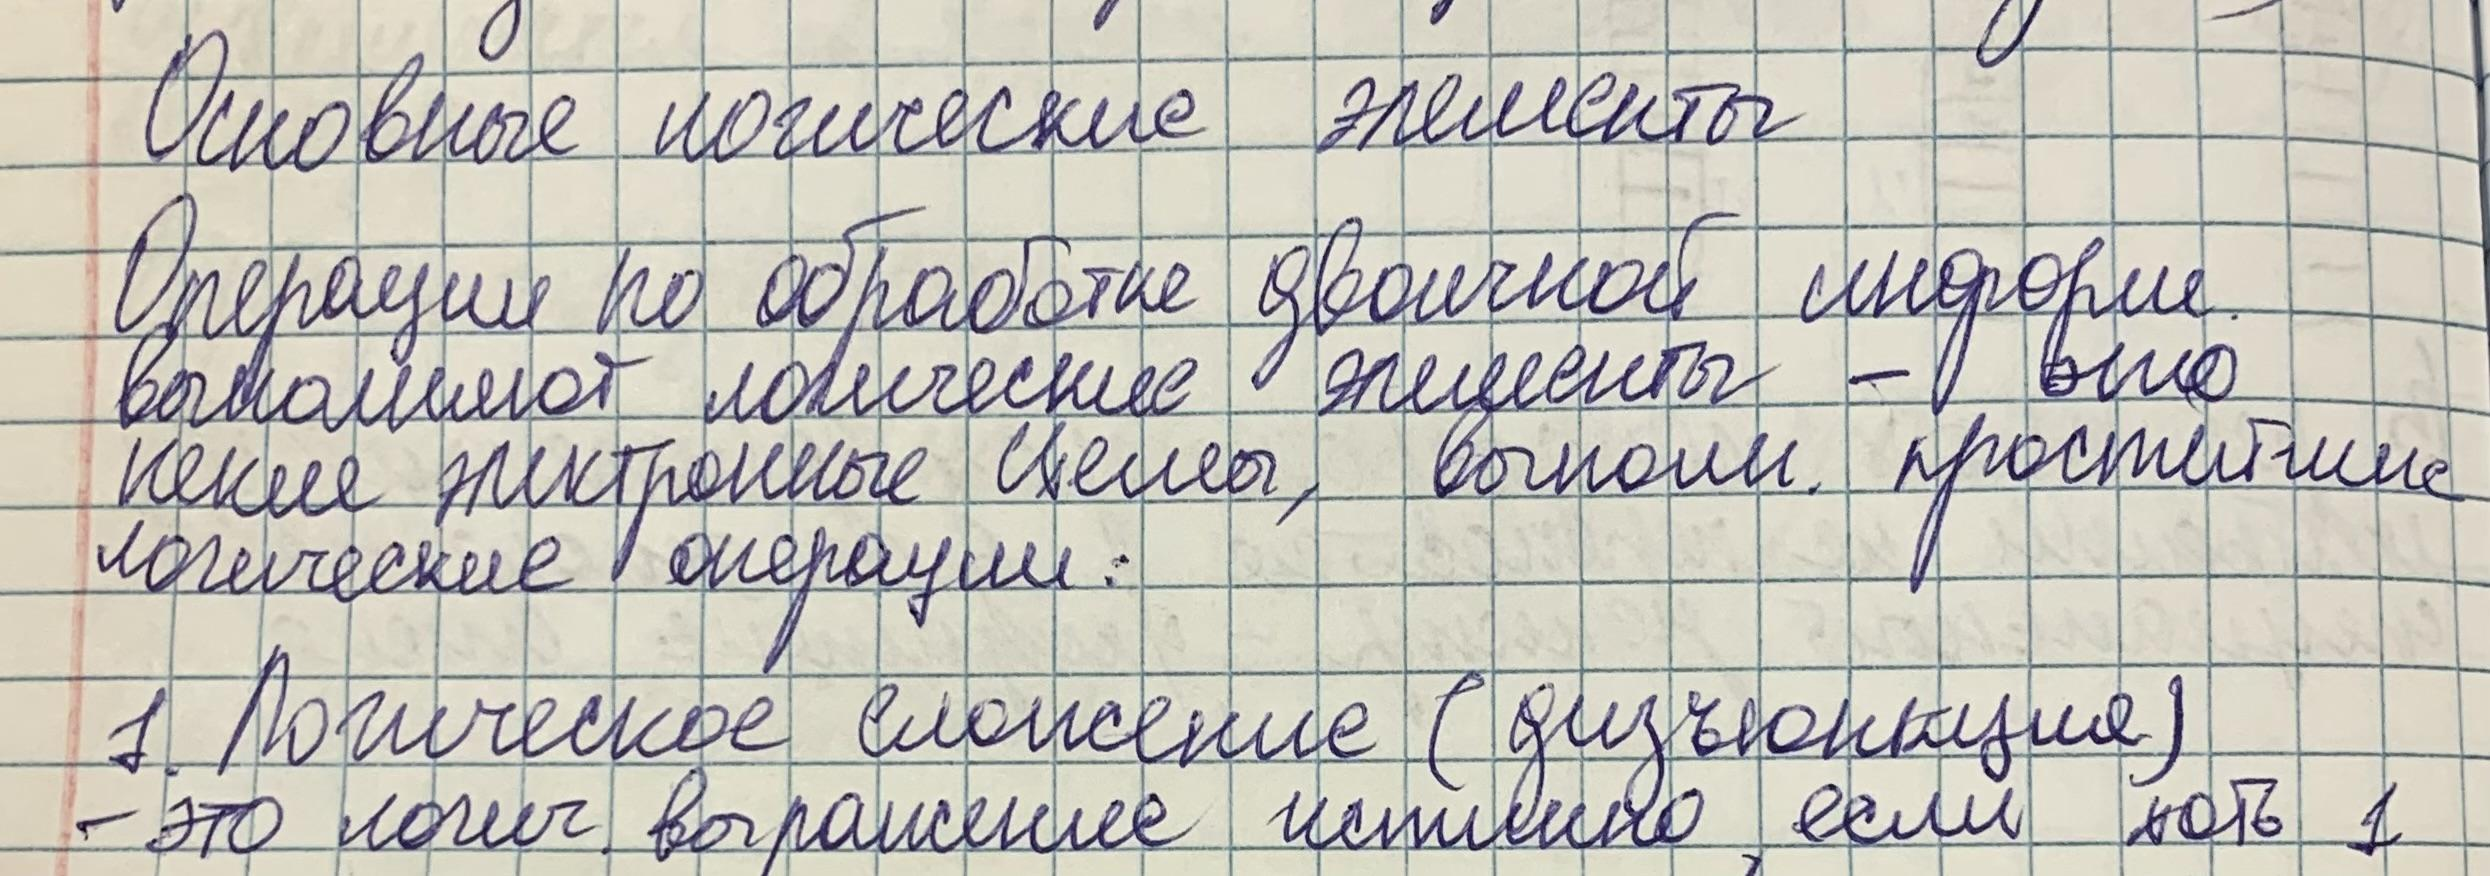 Основные логические элементы
Операции по обработке двоичной информ.
выполняют логические элементы - это
некие электронные схемы, выполн. простейшие
логические операции:
1. Логическое сложение (дизъюнкция)
- это логич. выражение истинно, если хоть 1